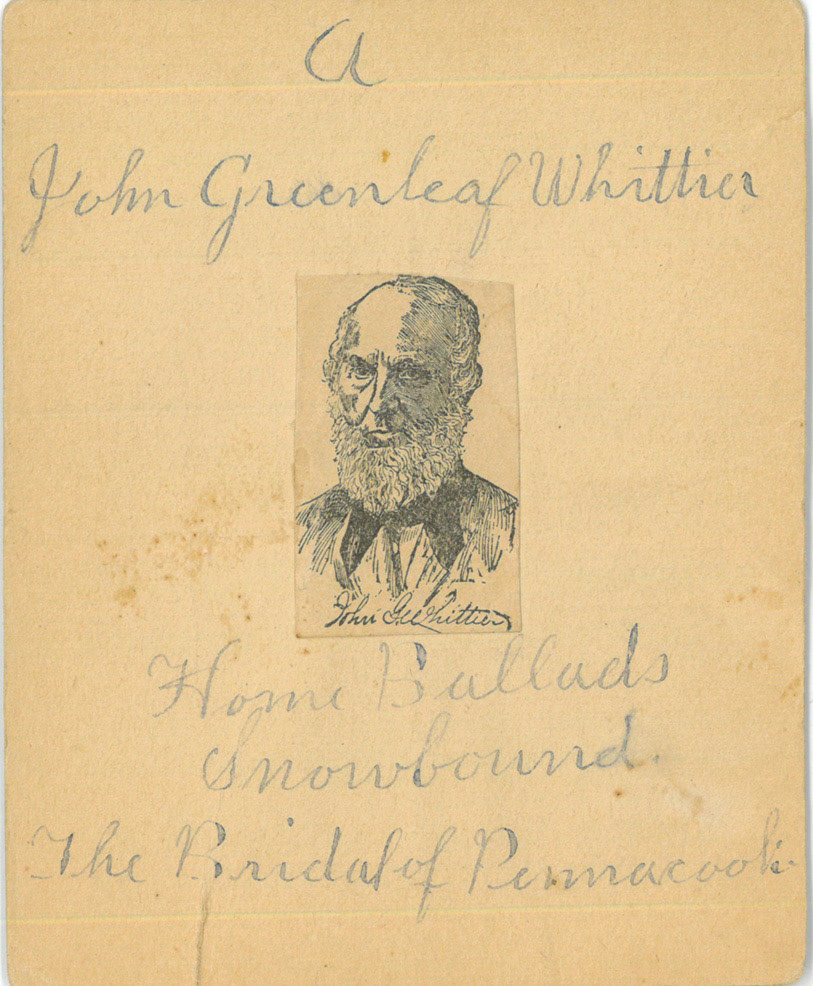 A
John Greenleaf Whittier
John G. Whittier
Home Ballads
Snowbound.
The Bridal of Pennacook.